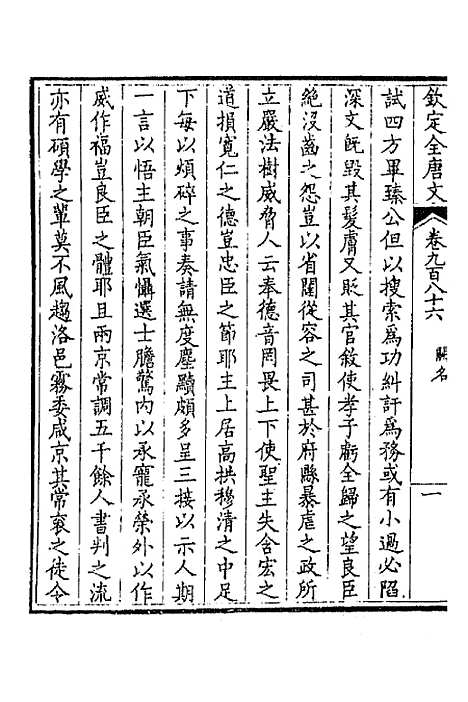 欽定全唐文
卷九百八十六
闕名
一
試四方畢臻公但以搜索爲功糾訐爲務或有小過必陷
深文旣毀其髮膚又貶其官敘使孝子虧全歸之望良臣
絶沒齒之怨豈以省闥從容之司甚於府縣暴虐之政所
立嚴法樹威脅人云奉德音罔畏上下使聖主失含宏之
道損寬仁之德豈忠臣之節耶主上居高拱穆清之中足
下每以煩碎之事奏請無度塵黷頗多呈三接以示人期
一言以悟主朝臣氣懾選士膽驚內以承寵承榮外以作
威作福豈良臣之體耶且兩京常調五千餘人書判之流
亦有碩學之輩莫不風趨洛邑霧委咸京其常衮之徒令